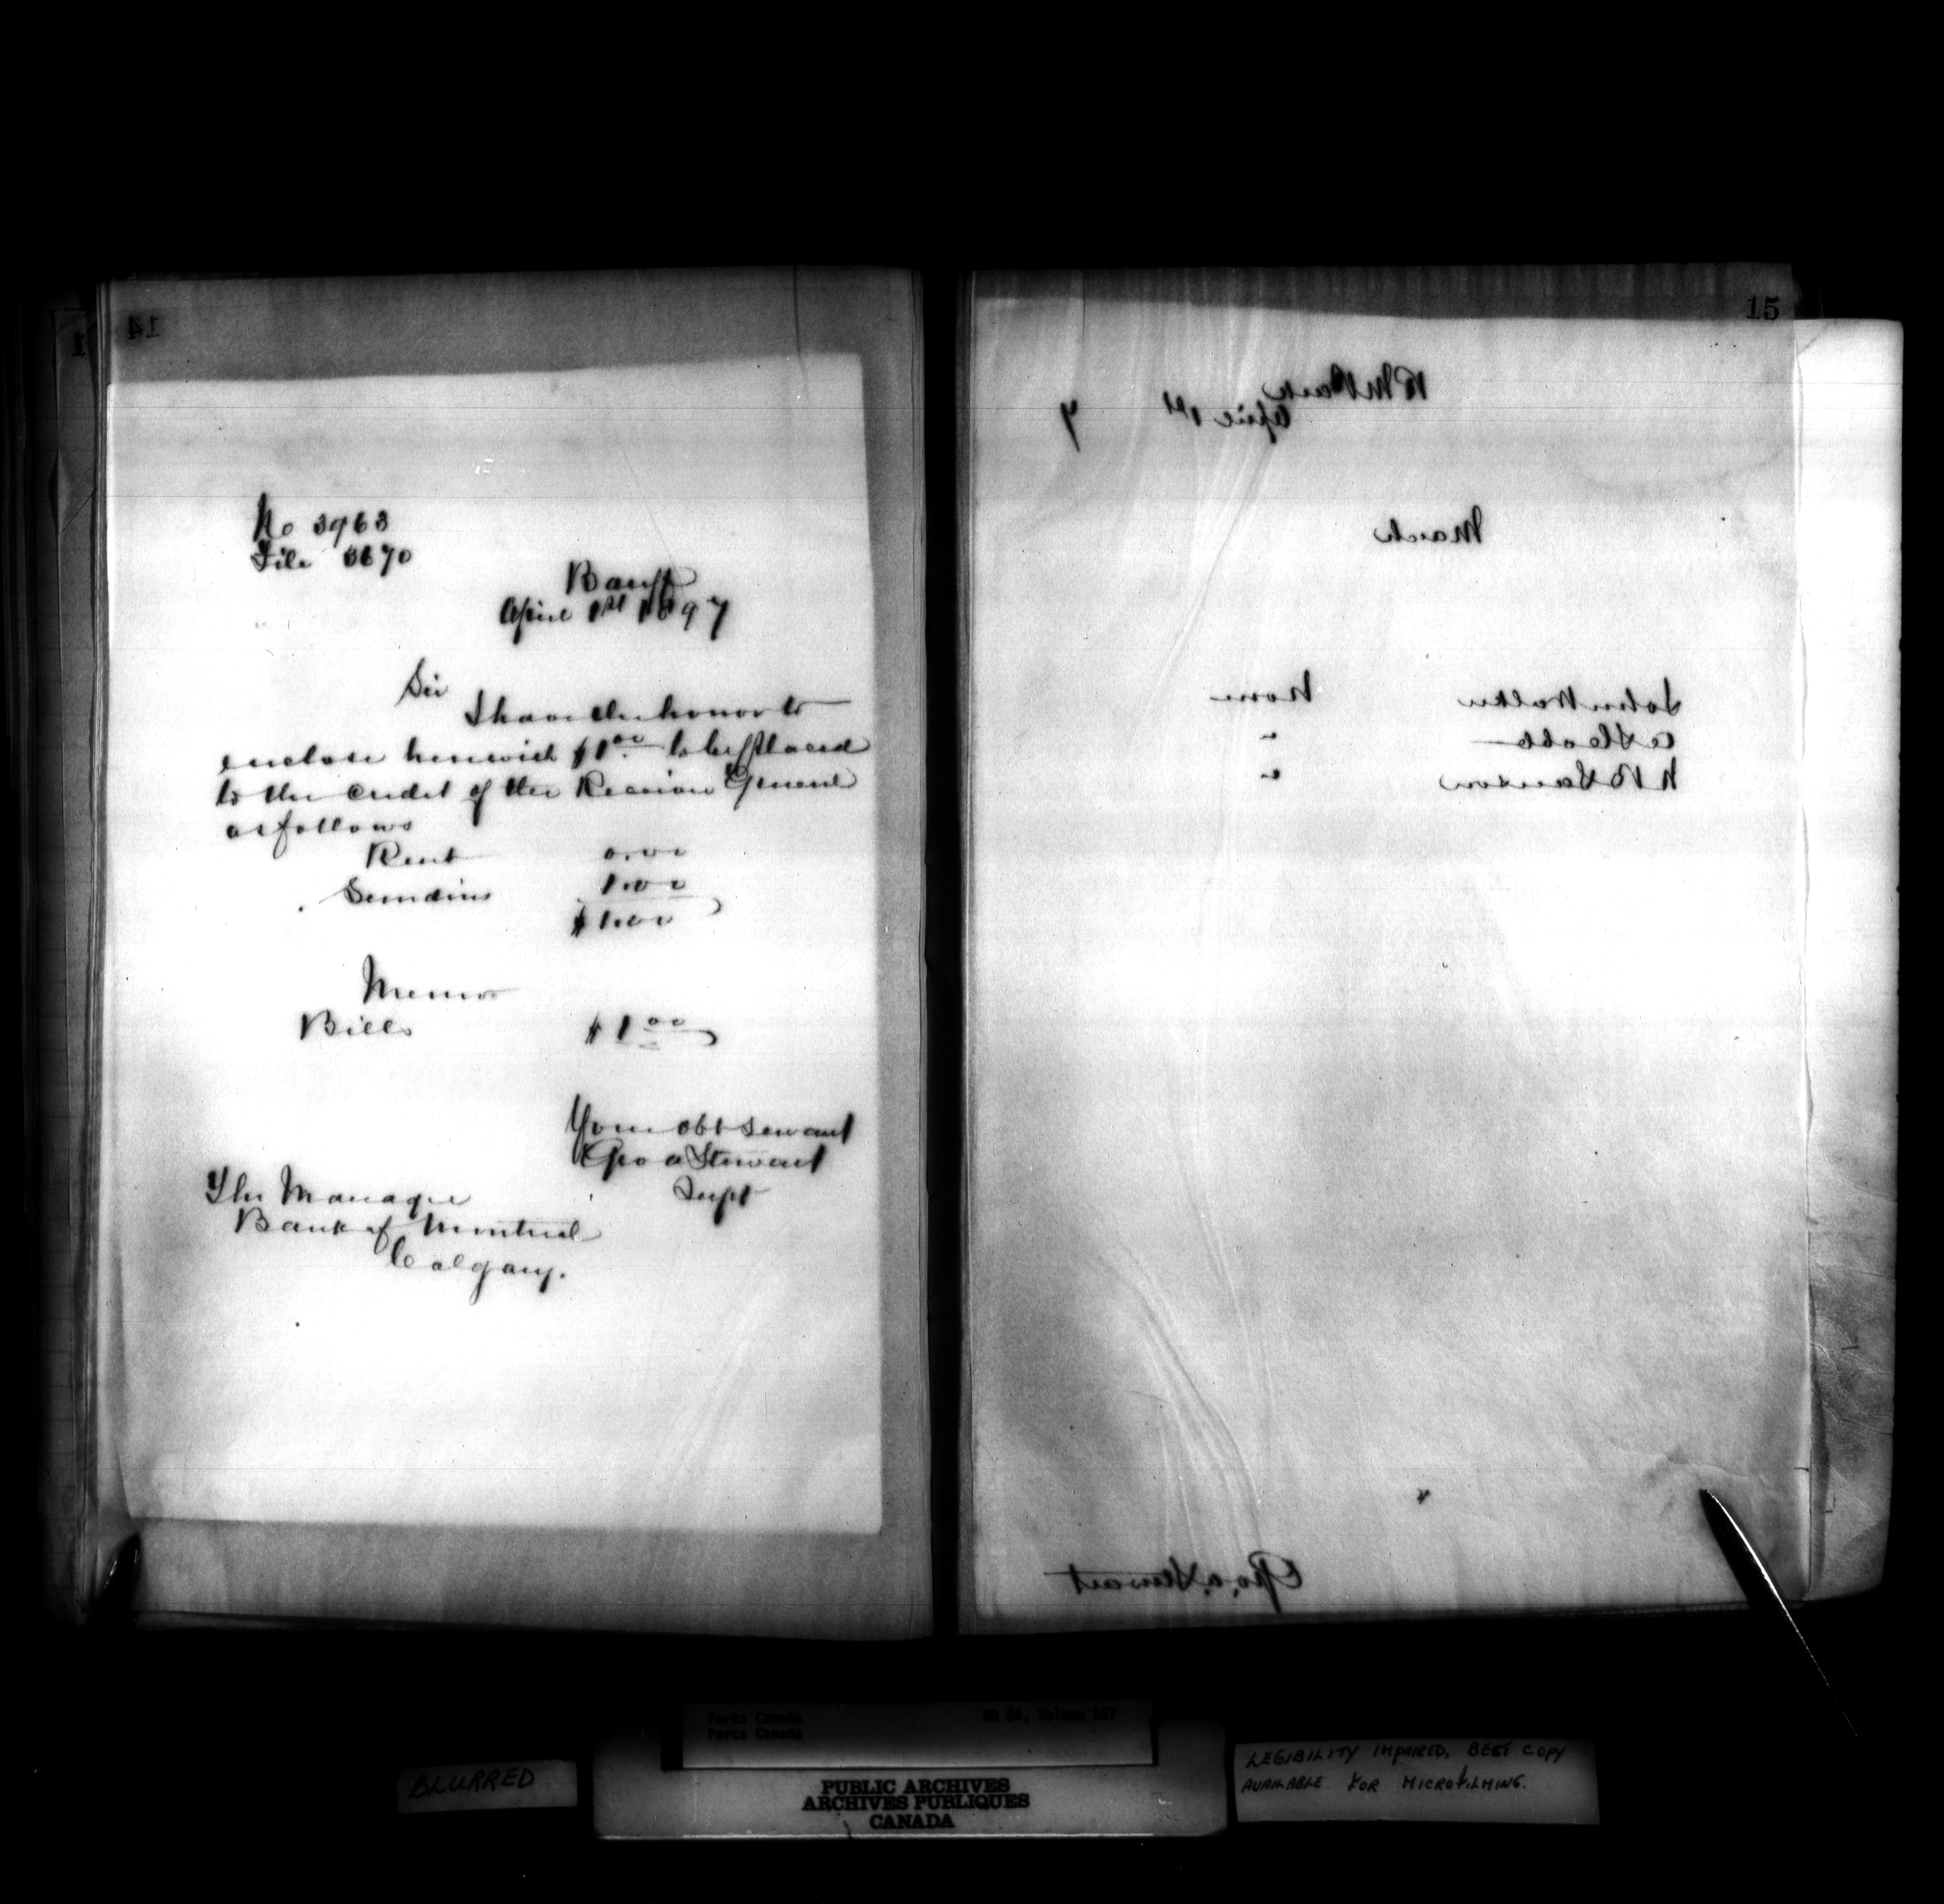 14
No 3963
File 3670
Banff
April 1st 1897
Sir
I have the honor to
enclose herewith $1.00 to be placed
to the credit of the Receiver General
as follows
Rent 0.00
Sundries 1.00
$1.00
Memo
Bills $1.00
Your obt servant
Geo a Stewart
Supt
The Manager
Bank of Montreal
Calgary.
15
R M Park
April 1st 7
March
John Walker None
N B Sanson "
Geo. a. Stewart
Parks Canada
Parcs Canada
RG 84, Volume
BLURRED
PUBLIC ARCHIVES
ARCHIVES PUBLIQUES
CANADA
LEGIBILITY IMPAIRED, BEST COPY
AVAILABLE FOR MICROFILMING.